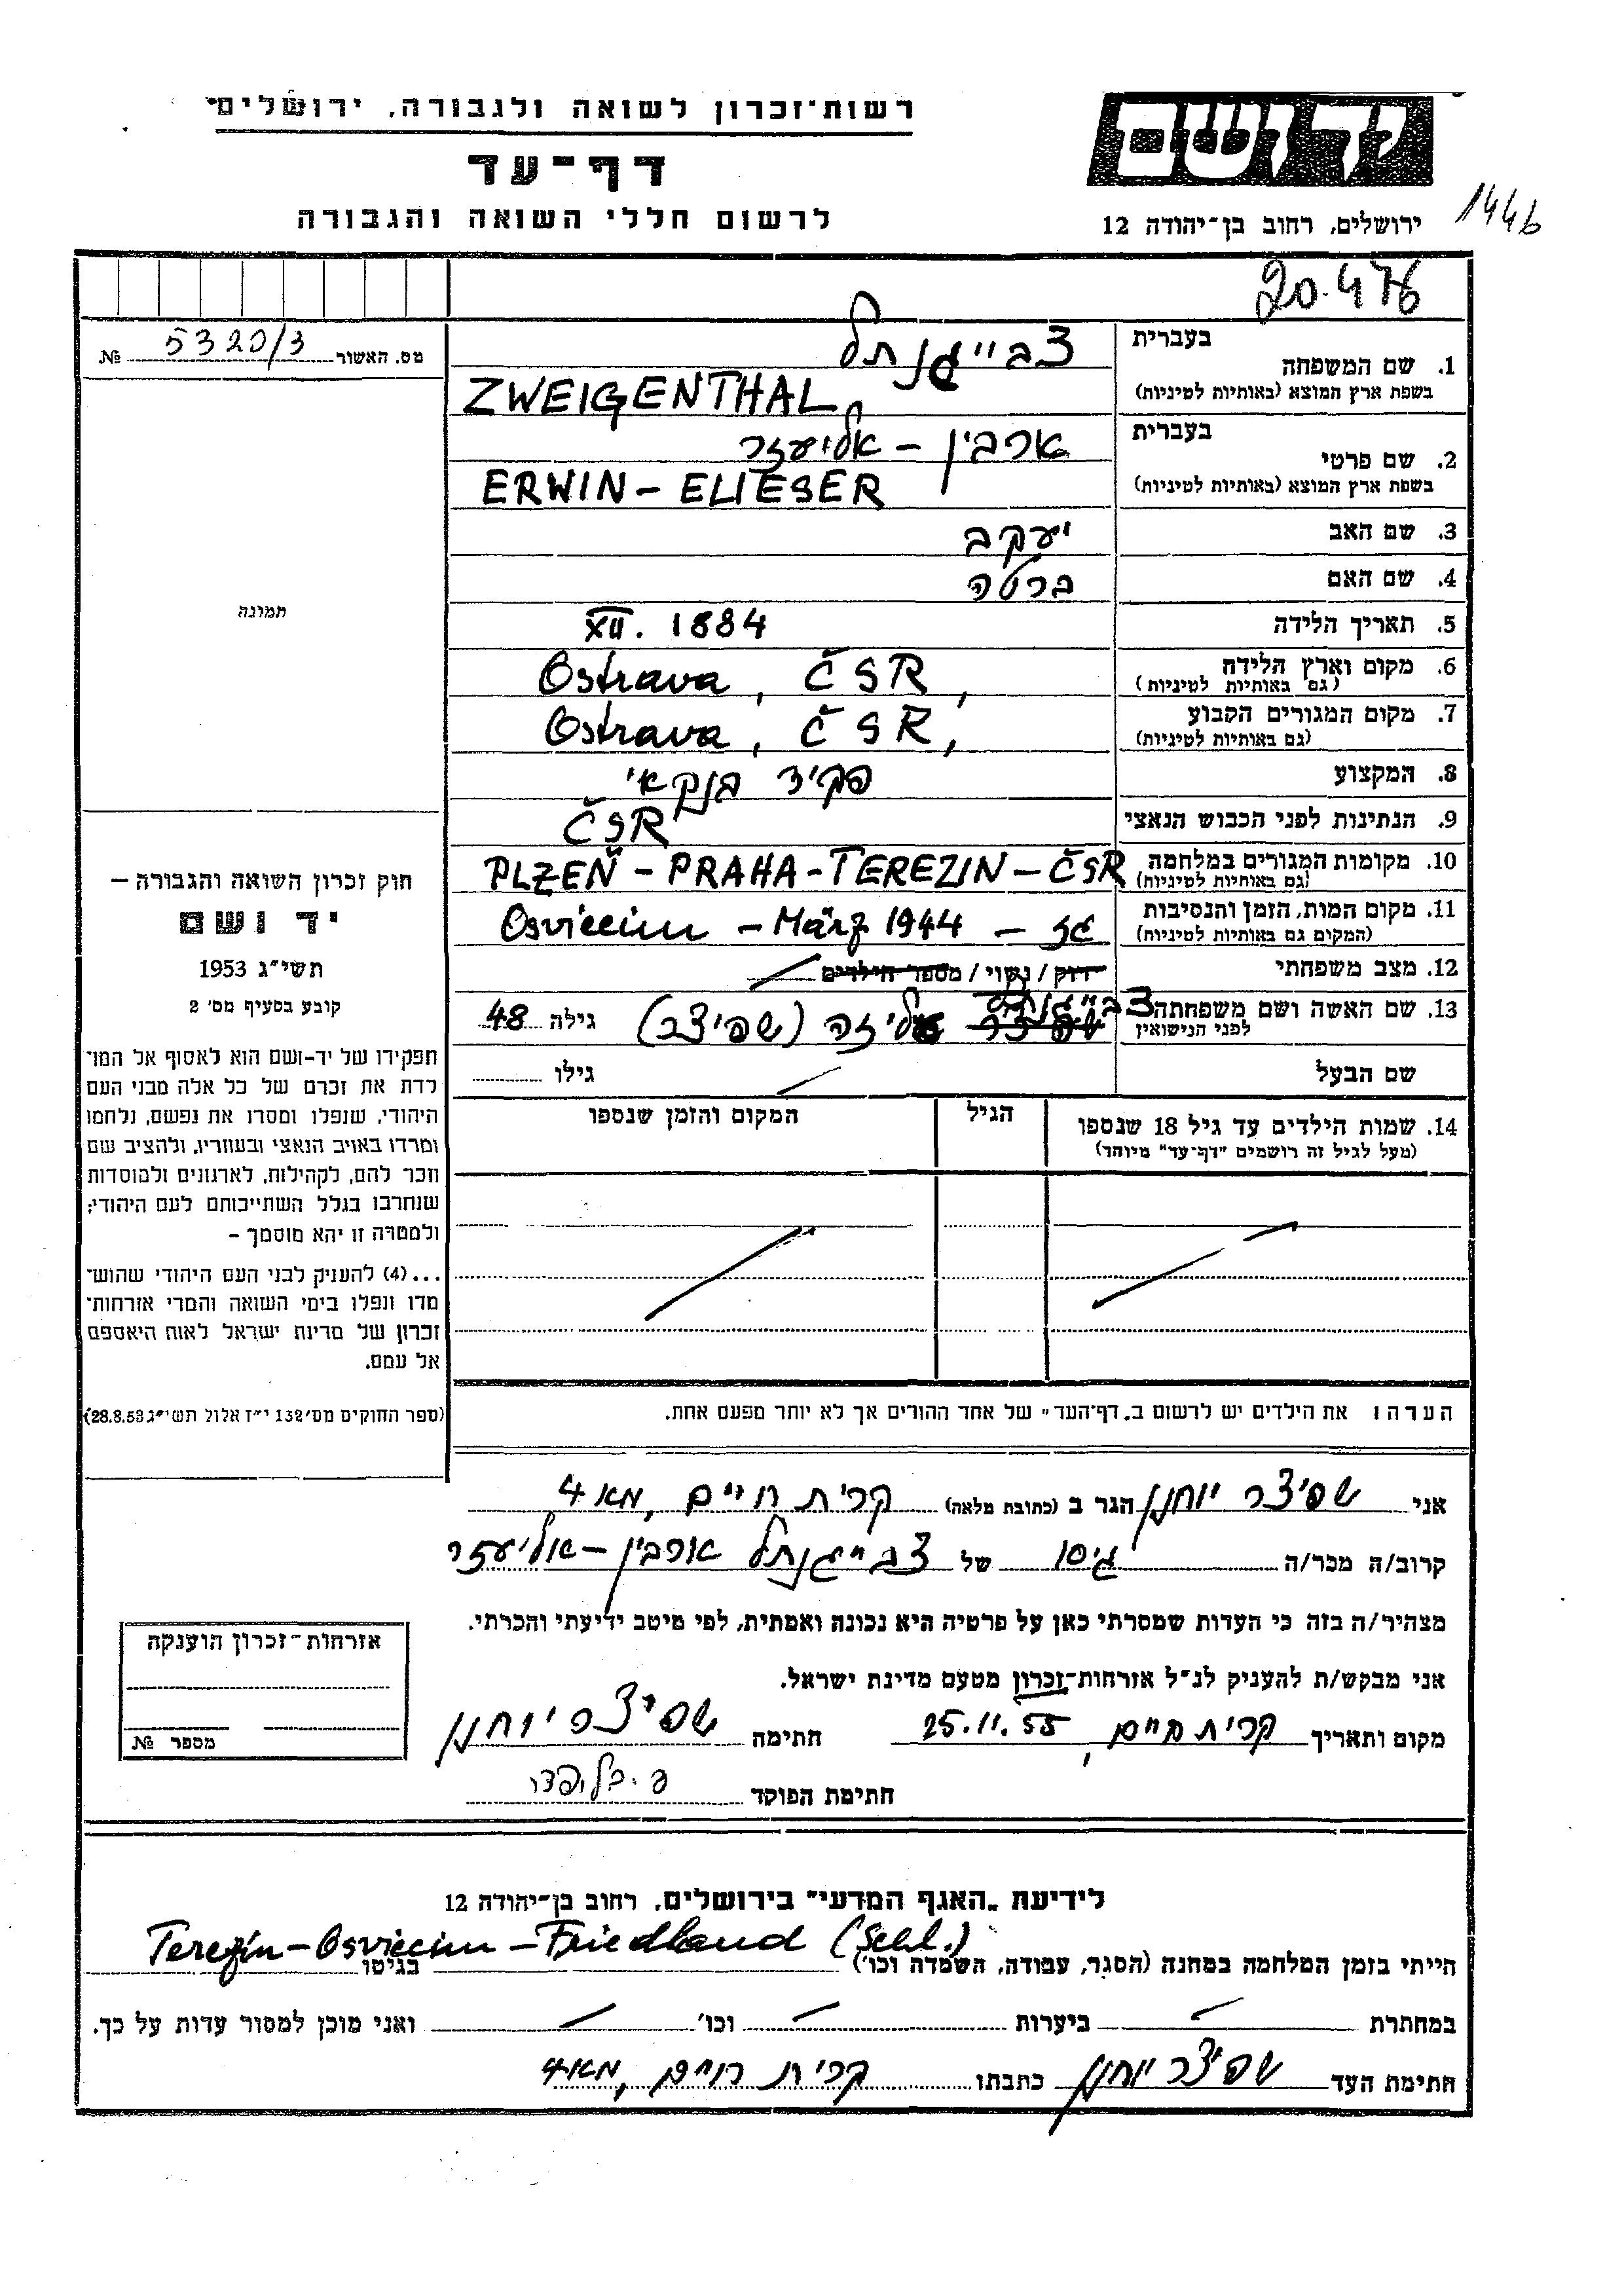 רשות-זכרון לשואה ולגבורה, ירושלים
דף-עד
לרשום חללי השואה והגבורה
יד ושם
ירושלים, רחוב בן-יהודה 12
1446
20.476
מס. האשור 5320/3 №
תמונה
חוק זכרון השואה והגבורה —
יד ושם
תשי״ג 1953
קובע בסעיף מס׳ 2
תפקידו של יד-ושם הוא לאסוף אל המו־
לדת את זכרם של כל אלה מבני העם
היהודי, שנפלו ומסרו את נפשם, נלחמו
ומרדו באויב הנאצי ובעוזריו, ולהציב שם
וזכר להם, לקהילות, לארגונים ולמוסדות
שנחרבו בגלל השתייכותם לעם היהודי;
ולמטרה זו יהא מוסמך —
...(4) להעניק לבני העם היהודי שהוש־
מדו ונפלו בימי השואה והמרי אזרחות־
זכרון של מדינת ישראל לאות היאספם
אל עמם.
(ספר החוקים מס׳ 132 י״ז אלול תשי״ג 28.8.53)
1. שם המשפחה בעברית צבייגנתל
(בשפת ארץ המוצא (באותיות לטיניות) ZWEIGENTHAL
2. שם פרטי בעברית ארבין – אליעזר
(בשפת ארץ המוצא (באותיות לטיניות) ERWIN – ELIESER
3. שם האב יעקב
4. שם האם ברטה
5. תאריך הלידה XII. 1884
6. מקום וארץ הלידה (גם באותיות לטיניות) Ostrava, ČSR,
7. מקום המגורים הקבוע (גם באותיות לטיניות) Ostrava, ČSR,
8. המקצוע פקיד בנקאי
9. הנתינות לפני הכבוש הנאצי ČSR
10. מקומות המגורים במלחמה (גם באותיות לטיניות) PLZEŇ – PRAHA – TEREZIN – ČSR
11. מקום המות, הזמן והנסיבות (המקום גם באותיות לטיניות) Osviecim – März 1944 – גז
12. מצב משפחתי רווק / נשוי / מספר הילדים
13. שם האשה ושם משפחתה לפני הנישואין צבייגנתל עליזה (שפיצר) גילה 48
שם הבעל גילו
14. שמות הילדים עד גיל 18 שנספו הגיל המקום והזמן שנספו
(מעל לגיל זה רושמים "דף-עד" מיוחד)
הערה: את הילדים יש לרשום ב„דף-העד" של אחד ההורים אך לא יותר מפעם אחת.
אני שפיצר יוחנן הגר ב (כתובת מלאה) קרית חיים, מאו 4
קרוב/ה מכר/ה גיסו של צבייגנתל ארבין – אליעזר
מצהיר/ה בזה כי העדות שמסרתי כאן על פרטיה היא נכונה ואמתית, לפי מיטב ידיעתי והכרתי.
אני מבקש/ת להעניק לנ״ל אזרחות-זכרון מטעם מדינת ישראל.
מקום ותאריך קרית חיים, 25.11.55 חתימה שפיצר יוחנן
חתימת הפוקד
אזרחות-זכרון הוענקה
מספר №
לידיעת „האגף המדעי" בירושלים, רחוב בן-יהודה 12
הייתי בזמן המלחמה במחנה (הסגר, עבודה, השמדה וכו׳) בגיטו Terezin – Osviecim – Friedland (Schl.)
במחתרת ביערות וכו׳ ואני מוכן למסור עדות על כך.
חתימת העד שפיצר יוחנן כתבתו קרית חיים, מאו 4